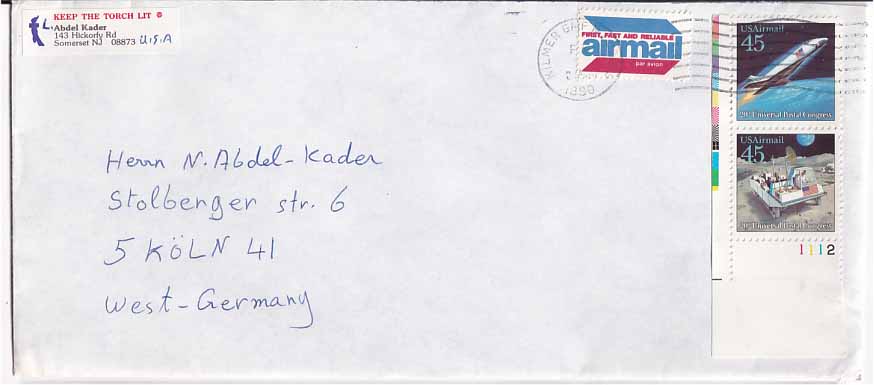 KEEP THE TORCH LIT ®
L. Abdel Kader
143 Hickorly Rd
Somerset NJ 08873 U.S.A
KILMER
1990
FIRST, FAST AND RELIABLE
airmail
par avion
USAirmail
45
20th Universal Postal Congress
USAirmail
45
20th Universal Postal Congress
1112
Herrn N. Abdel-Kader
Stolberger str. 6
5 KÖLN 41
West-Germany